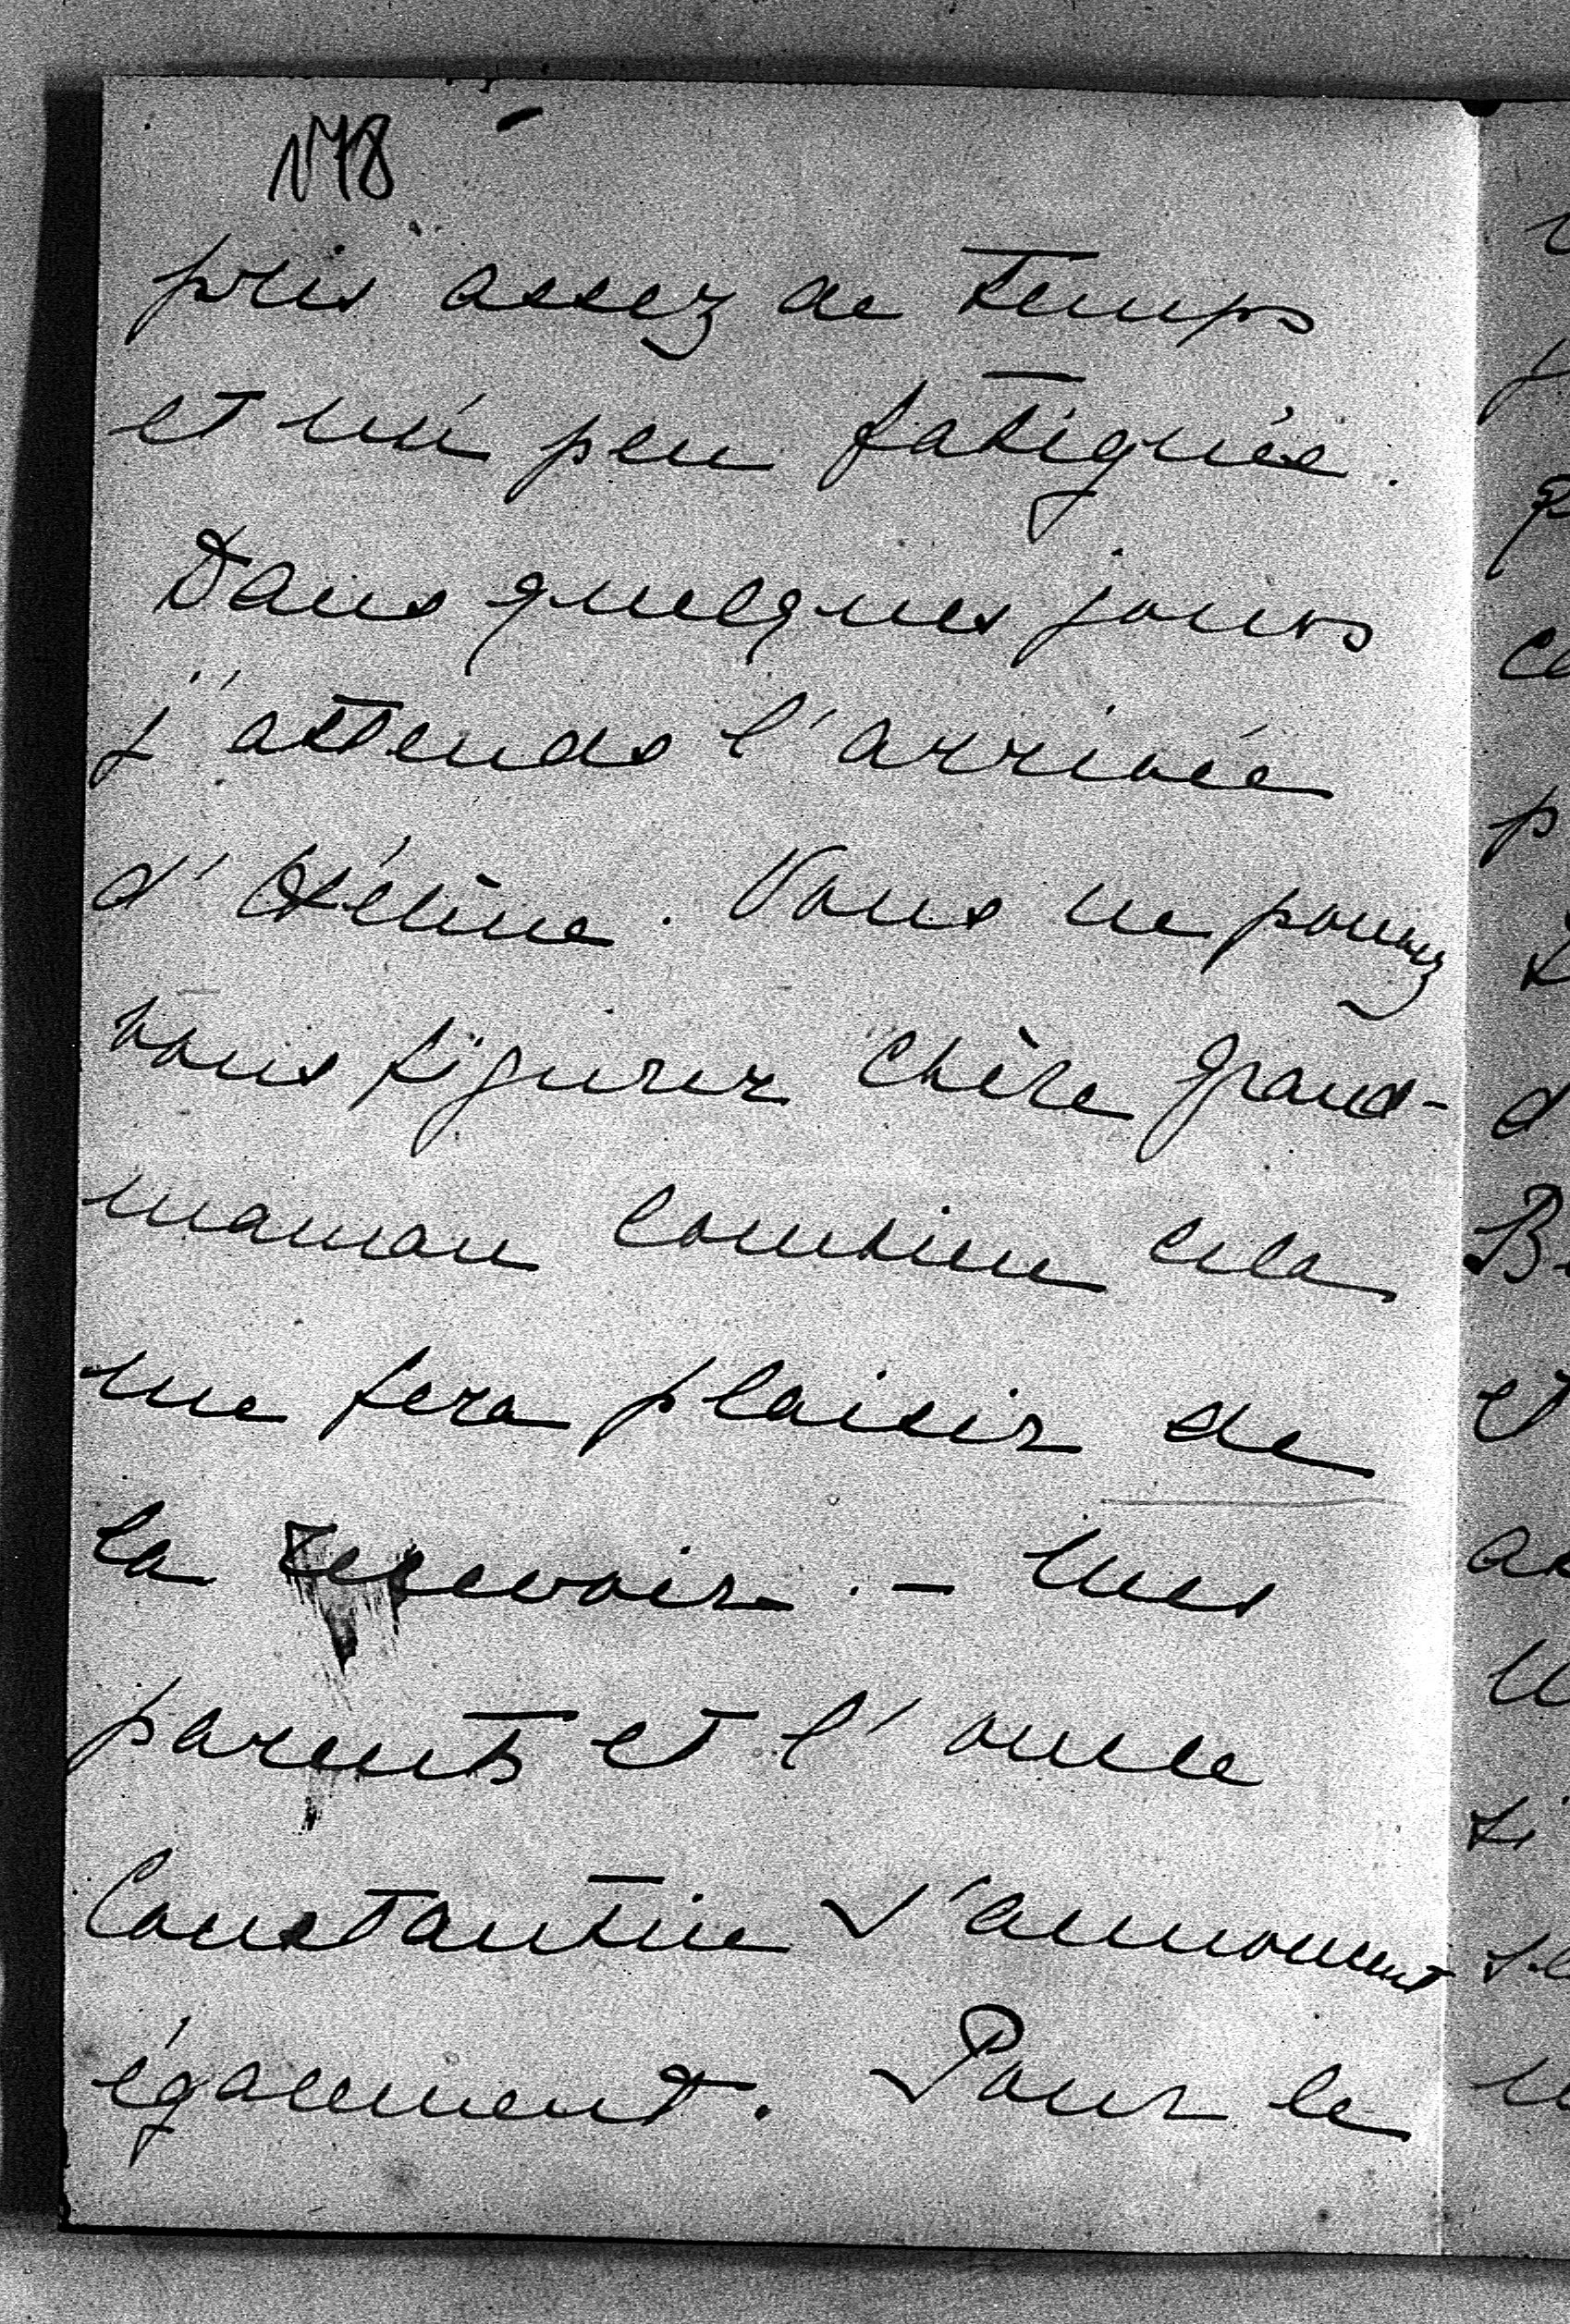 178
pris assez de temps
et un peu fatiguée.
Dans quelques jours
j'attends l'arrivée
d'Hélène. Vous ne pouvez
vous figurer chère grand-
maman combien cela
me fera plaisir de
la recevoir. – Mes
parents et l'oncle
Constantin s'annoncent
également. Pour le